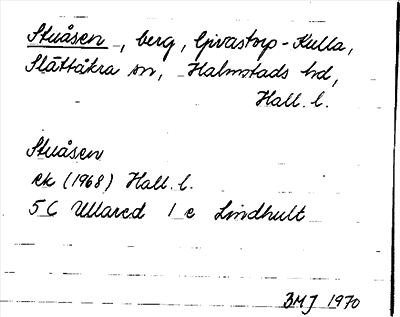 Stuåsen, berg, Givastorp-Kulla,
Slättåkra sn, Halmstads hd,
Hall. l.
Stuåsen
ek (1968) Hall. l.
5 C Ullared 1 c Lindhult
BMJ 1970